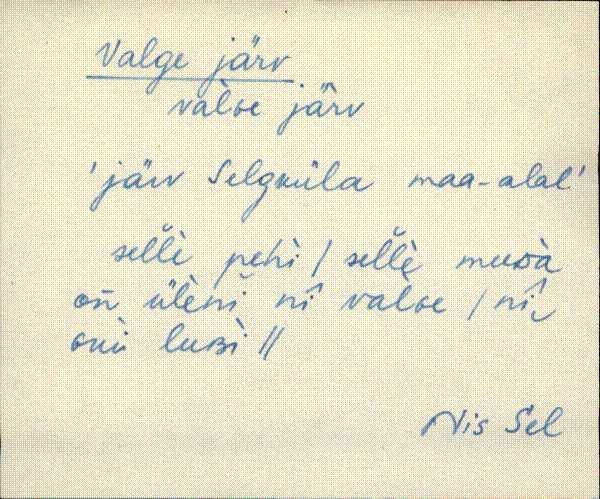 Valge järv
valɢe järv
'järv Selgküla maa-alal'
sell̆è pehì / sell̆è muᴅà
on̄ ülèni nî valɢe / nî,
luʙì //
Nis Sel